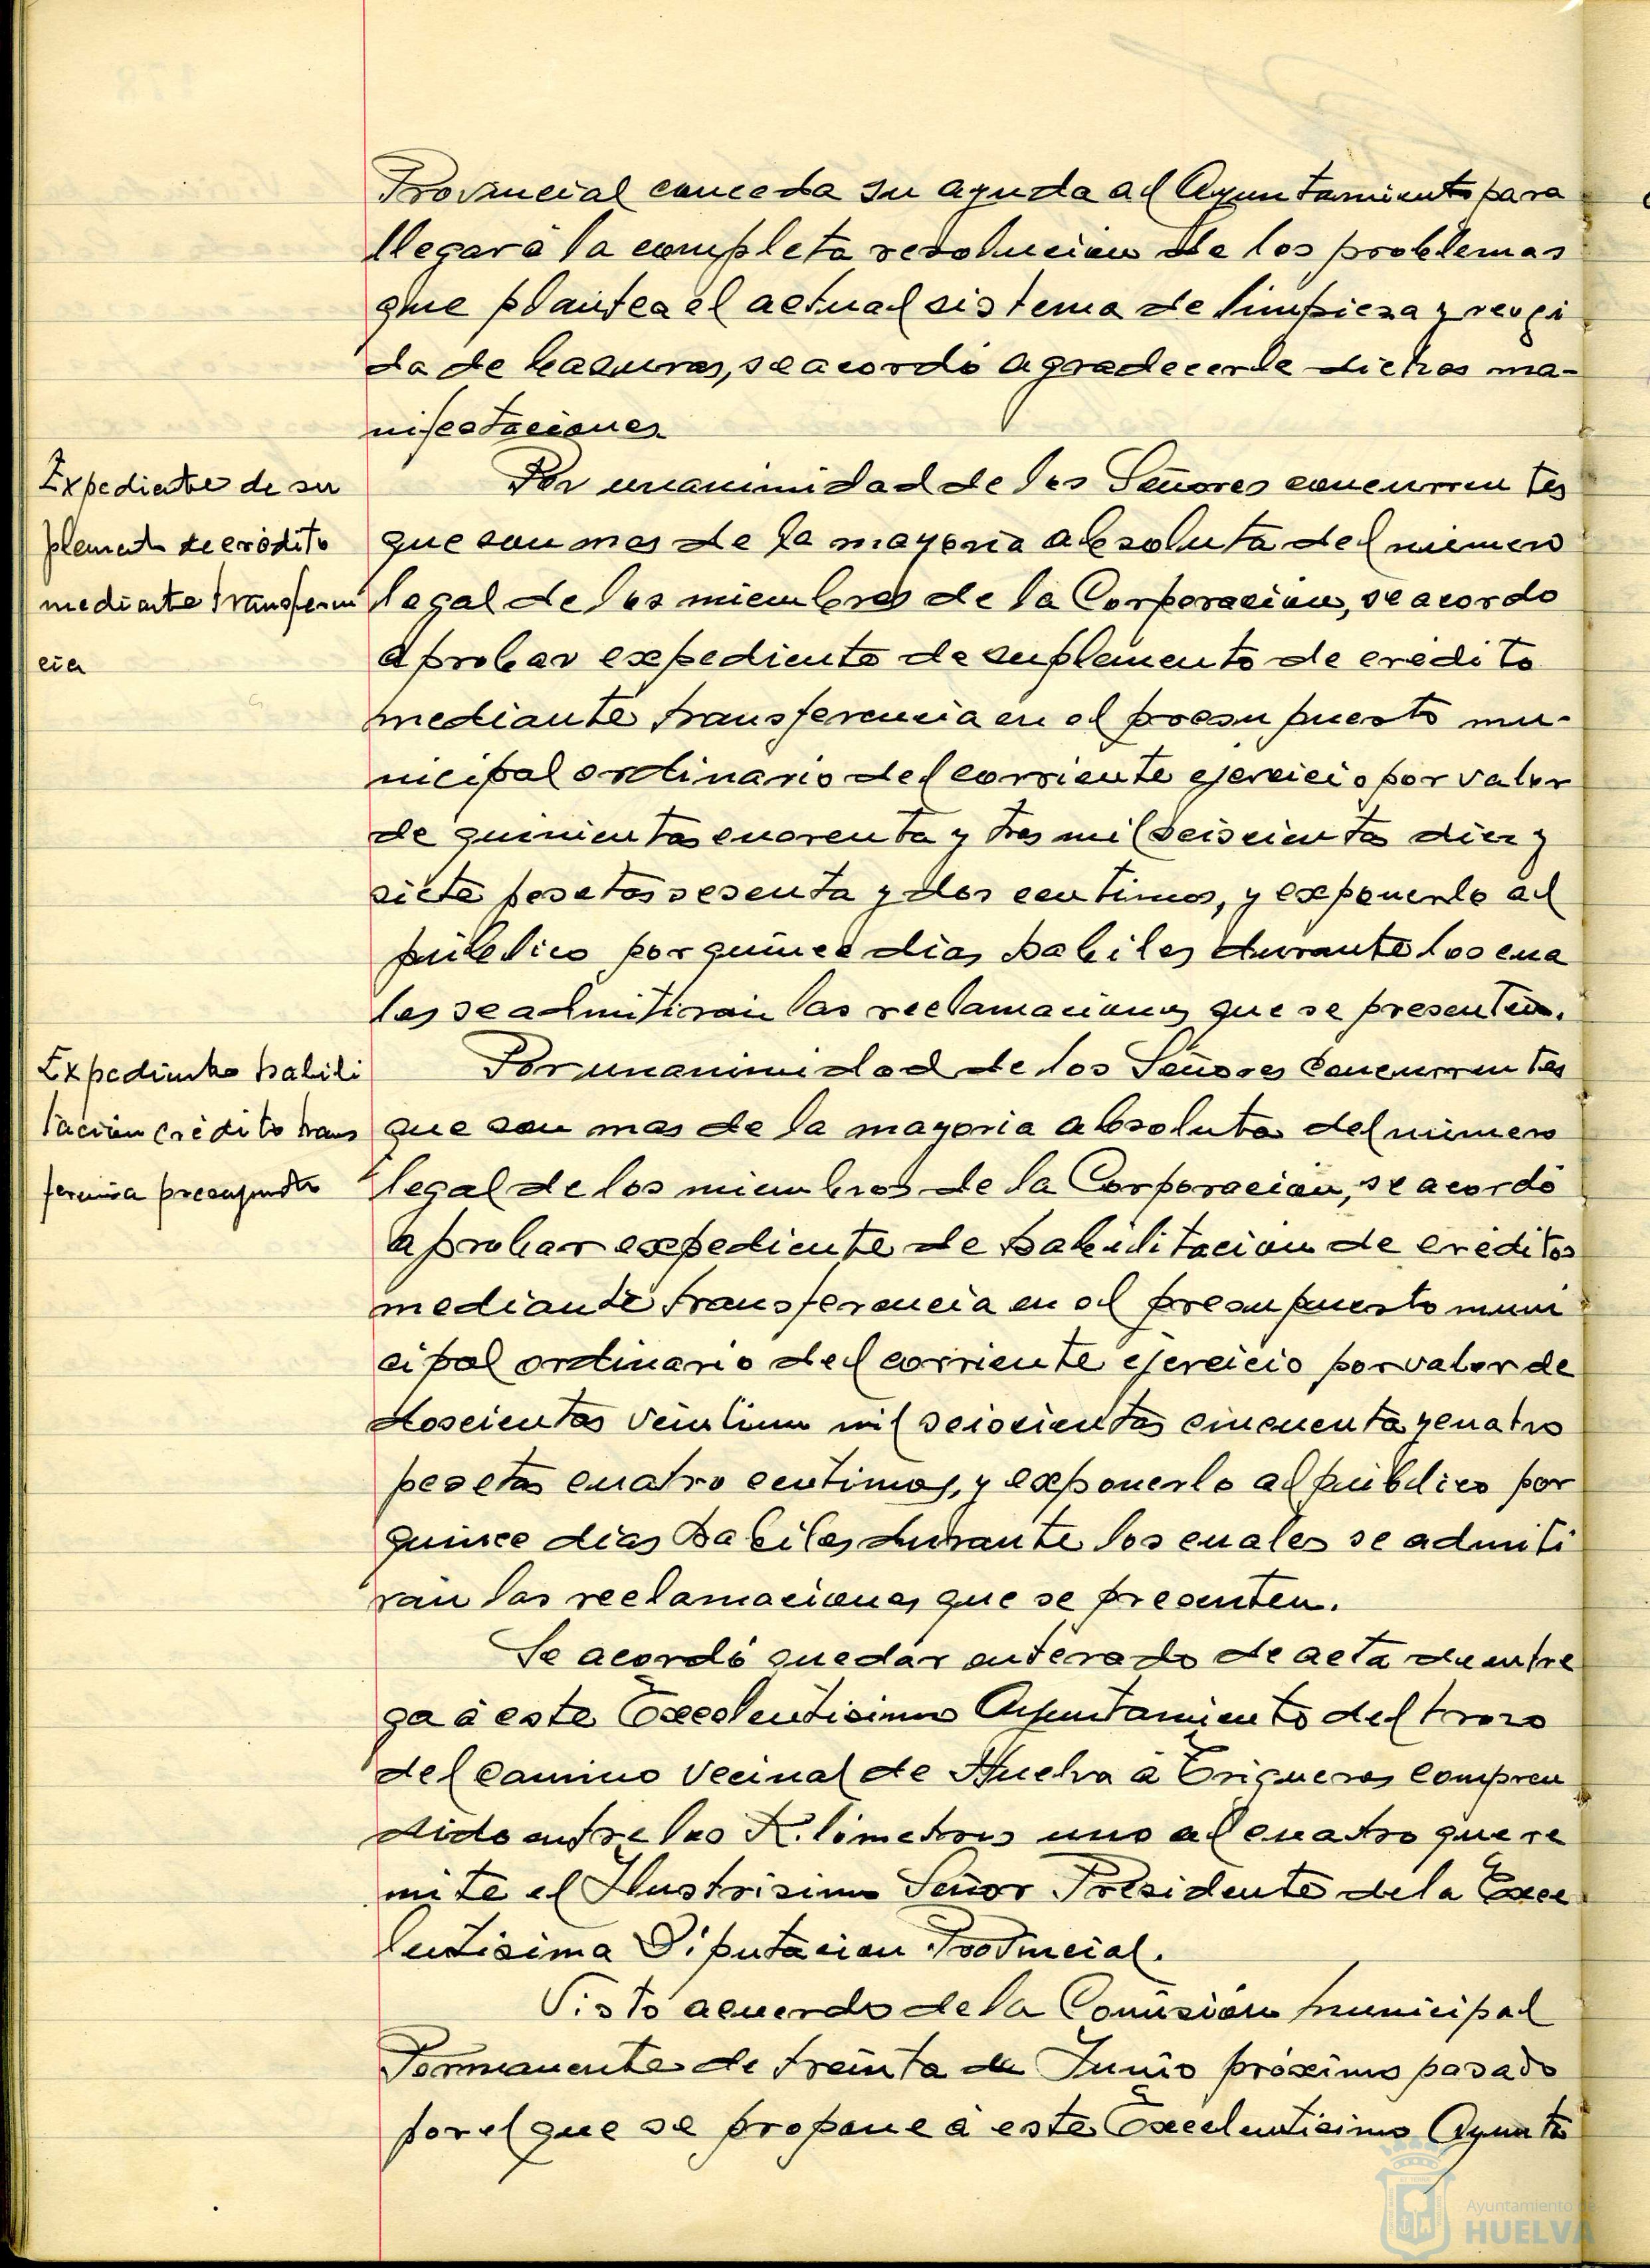 Provincial conceda su ayuda al Ayuntamiento para
llegar á la completa resolucion de los problemas
que plantea el actual sistema de limpieza y recogi
da de basuras, se acordó agradecerle dichas ma-
nifestaciones.
Expediente de su
plemento de crédito
mediante transferen
cia
Por unanimidad de los Señores concurrentes
que son mas de la mayoria absoluta del número
legal de los miembros de la Corporacion, se acordo
aprobar expediente de suplemento de crédito
mediante transferencia en el presupuesto mu-
nicipal ordinario del corriente ejercicio por valor
de quinientas cuarenta y tres mil seiscientas diez y
siete pesetas sesenta y dos centimos, y exponerlo al
público por quince dias habiles durante los cua
les se admitirán las reclamaciones que se presenten.
Expediente habili
tación crédito trans
ferencia presupuesto
Por unanimidad de los Señores Concurrentes
que son mas de la mayoria absoluta del número
legal de los miembros de la Corporación, se acordó
aprobar expediente de habilitacion de créditos
mediante transferencia en el presupuesto muni
cipal ordinario del corriente ejercicio por valor de
doscientas veintiun mil seiscientas cincuenta y cuatro
pesetas cuatro centimos, y exponerlo al público por
quince dias habiles durante los cuales se admiti
rán las reclamaciones que se presenten.
Se acordó quedar enterado de acta de entre
ga á este Excelentisimo Ayuntamiento del trozo
del camino vecinal de Huelva á Trigueros compren
dido entre los Kilómetros uno al cuatro que re
mite el Ilustrisimo Señor Presidente de la Exce
lentisima Diputacion Provincial.
Visto acuerdo de la Comisión Municipal
Permanente de treinta de Junio próximo pasado
por el que se propone á este Excelentisimo Ayunta
Ayuntamiento de
HUELVA